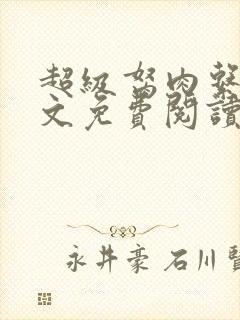 超級弩肉
文免費閱讀
永井豪 石川賢